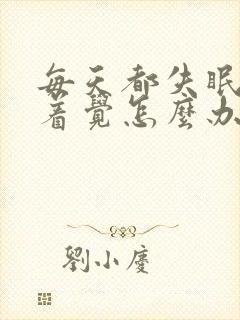 每天都失眠
着覺怎麼办
劉小慶